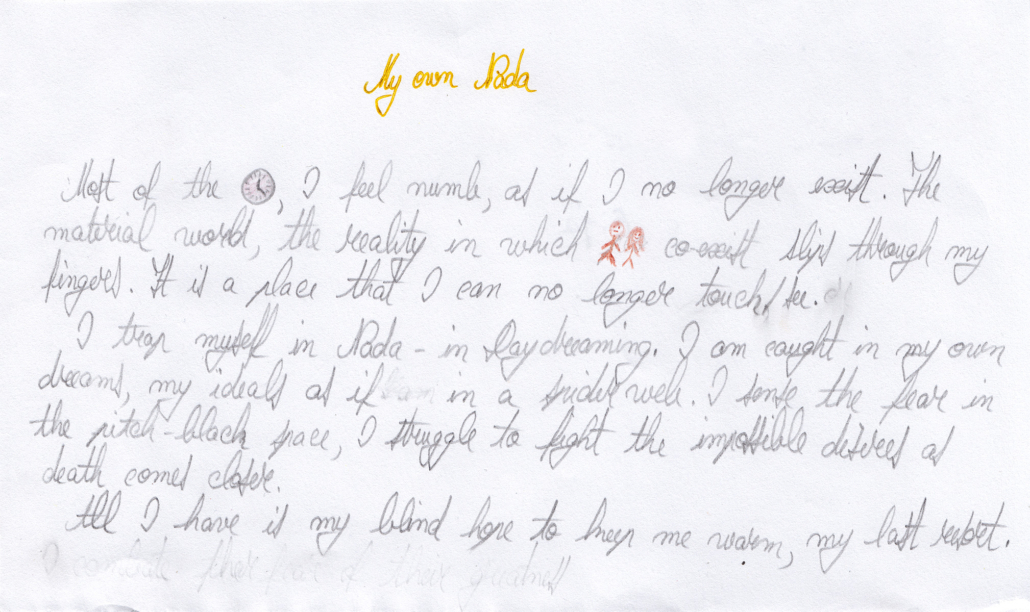 My own Nada
Most of the , I feel numb, as if I no longer exist. The
material world, the reality in which co-exist slips through my
fingers. It is a place that I can no longer touch, see.
I trap myself in Nada - in Daydreaming. I am caught in my own
dreams, my ideals as if in a spider web. I sense the fear in
the pitch-black space, I struggle to fight the impossible desires as
death comes closer.
All I have is my blind hope to keep me warm, my last resort.
I their fear of their